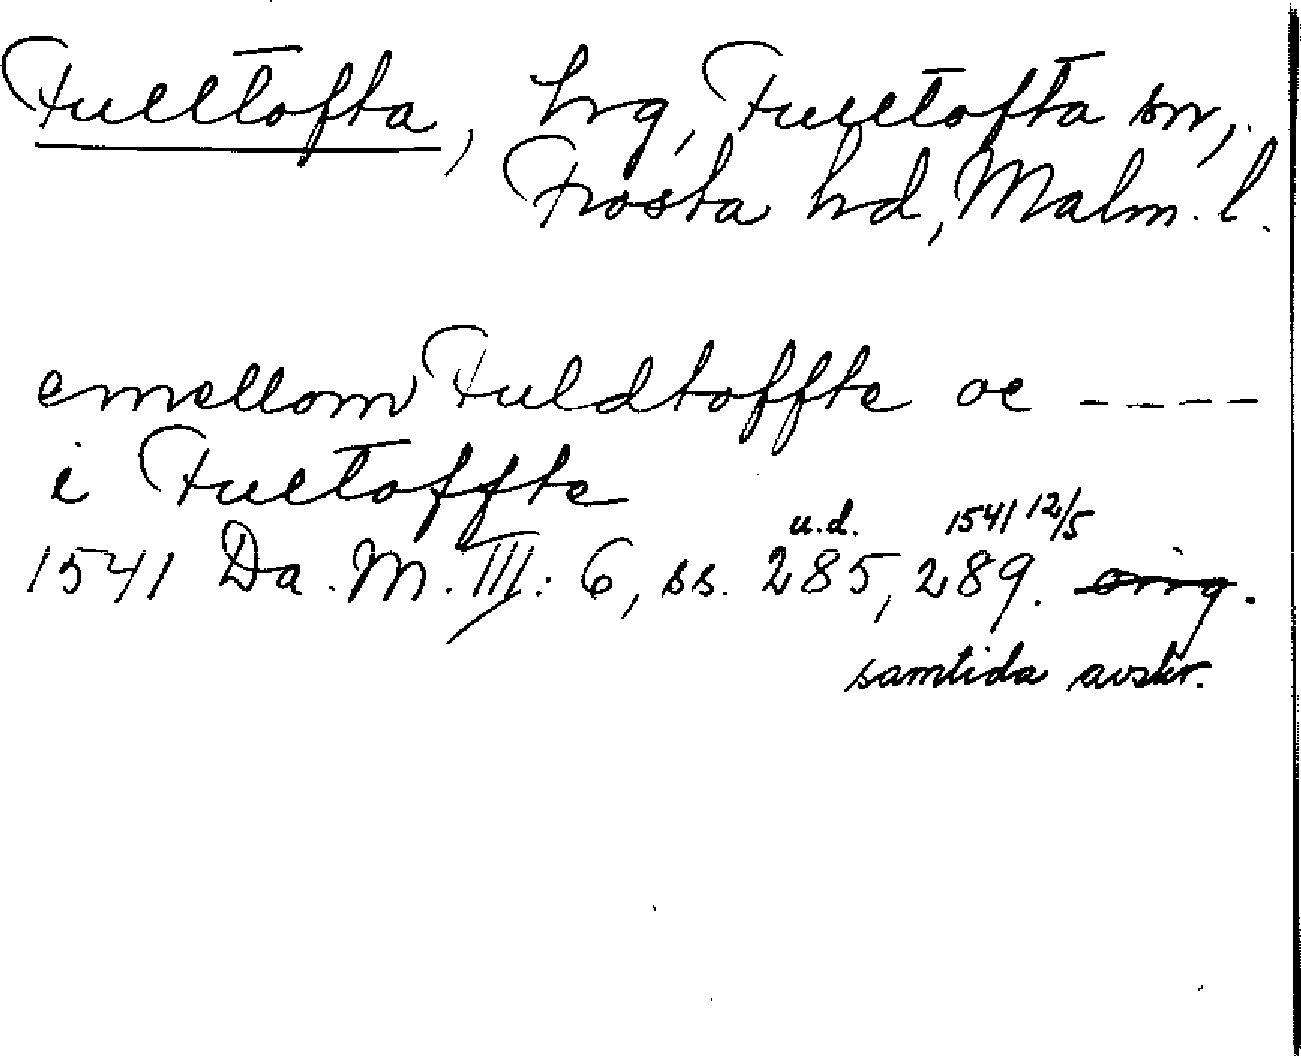 Fulltofta, hrg, Fulltofta sn,
Frosta hd, Malm. l.
emellom Fuldtoffte oc ----
i Fultoffte
u.d. 1541 12/5
1541 Da. M. III: 6, ss. 285, 289. orig.
samtida avskr.